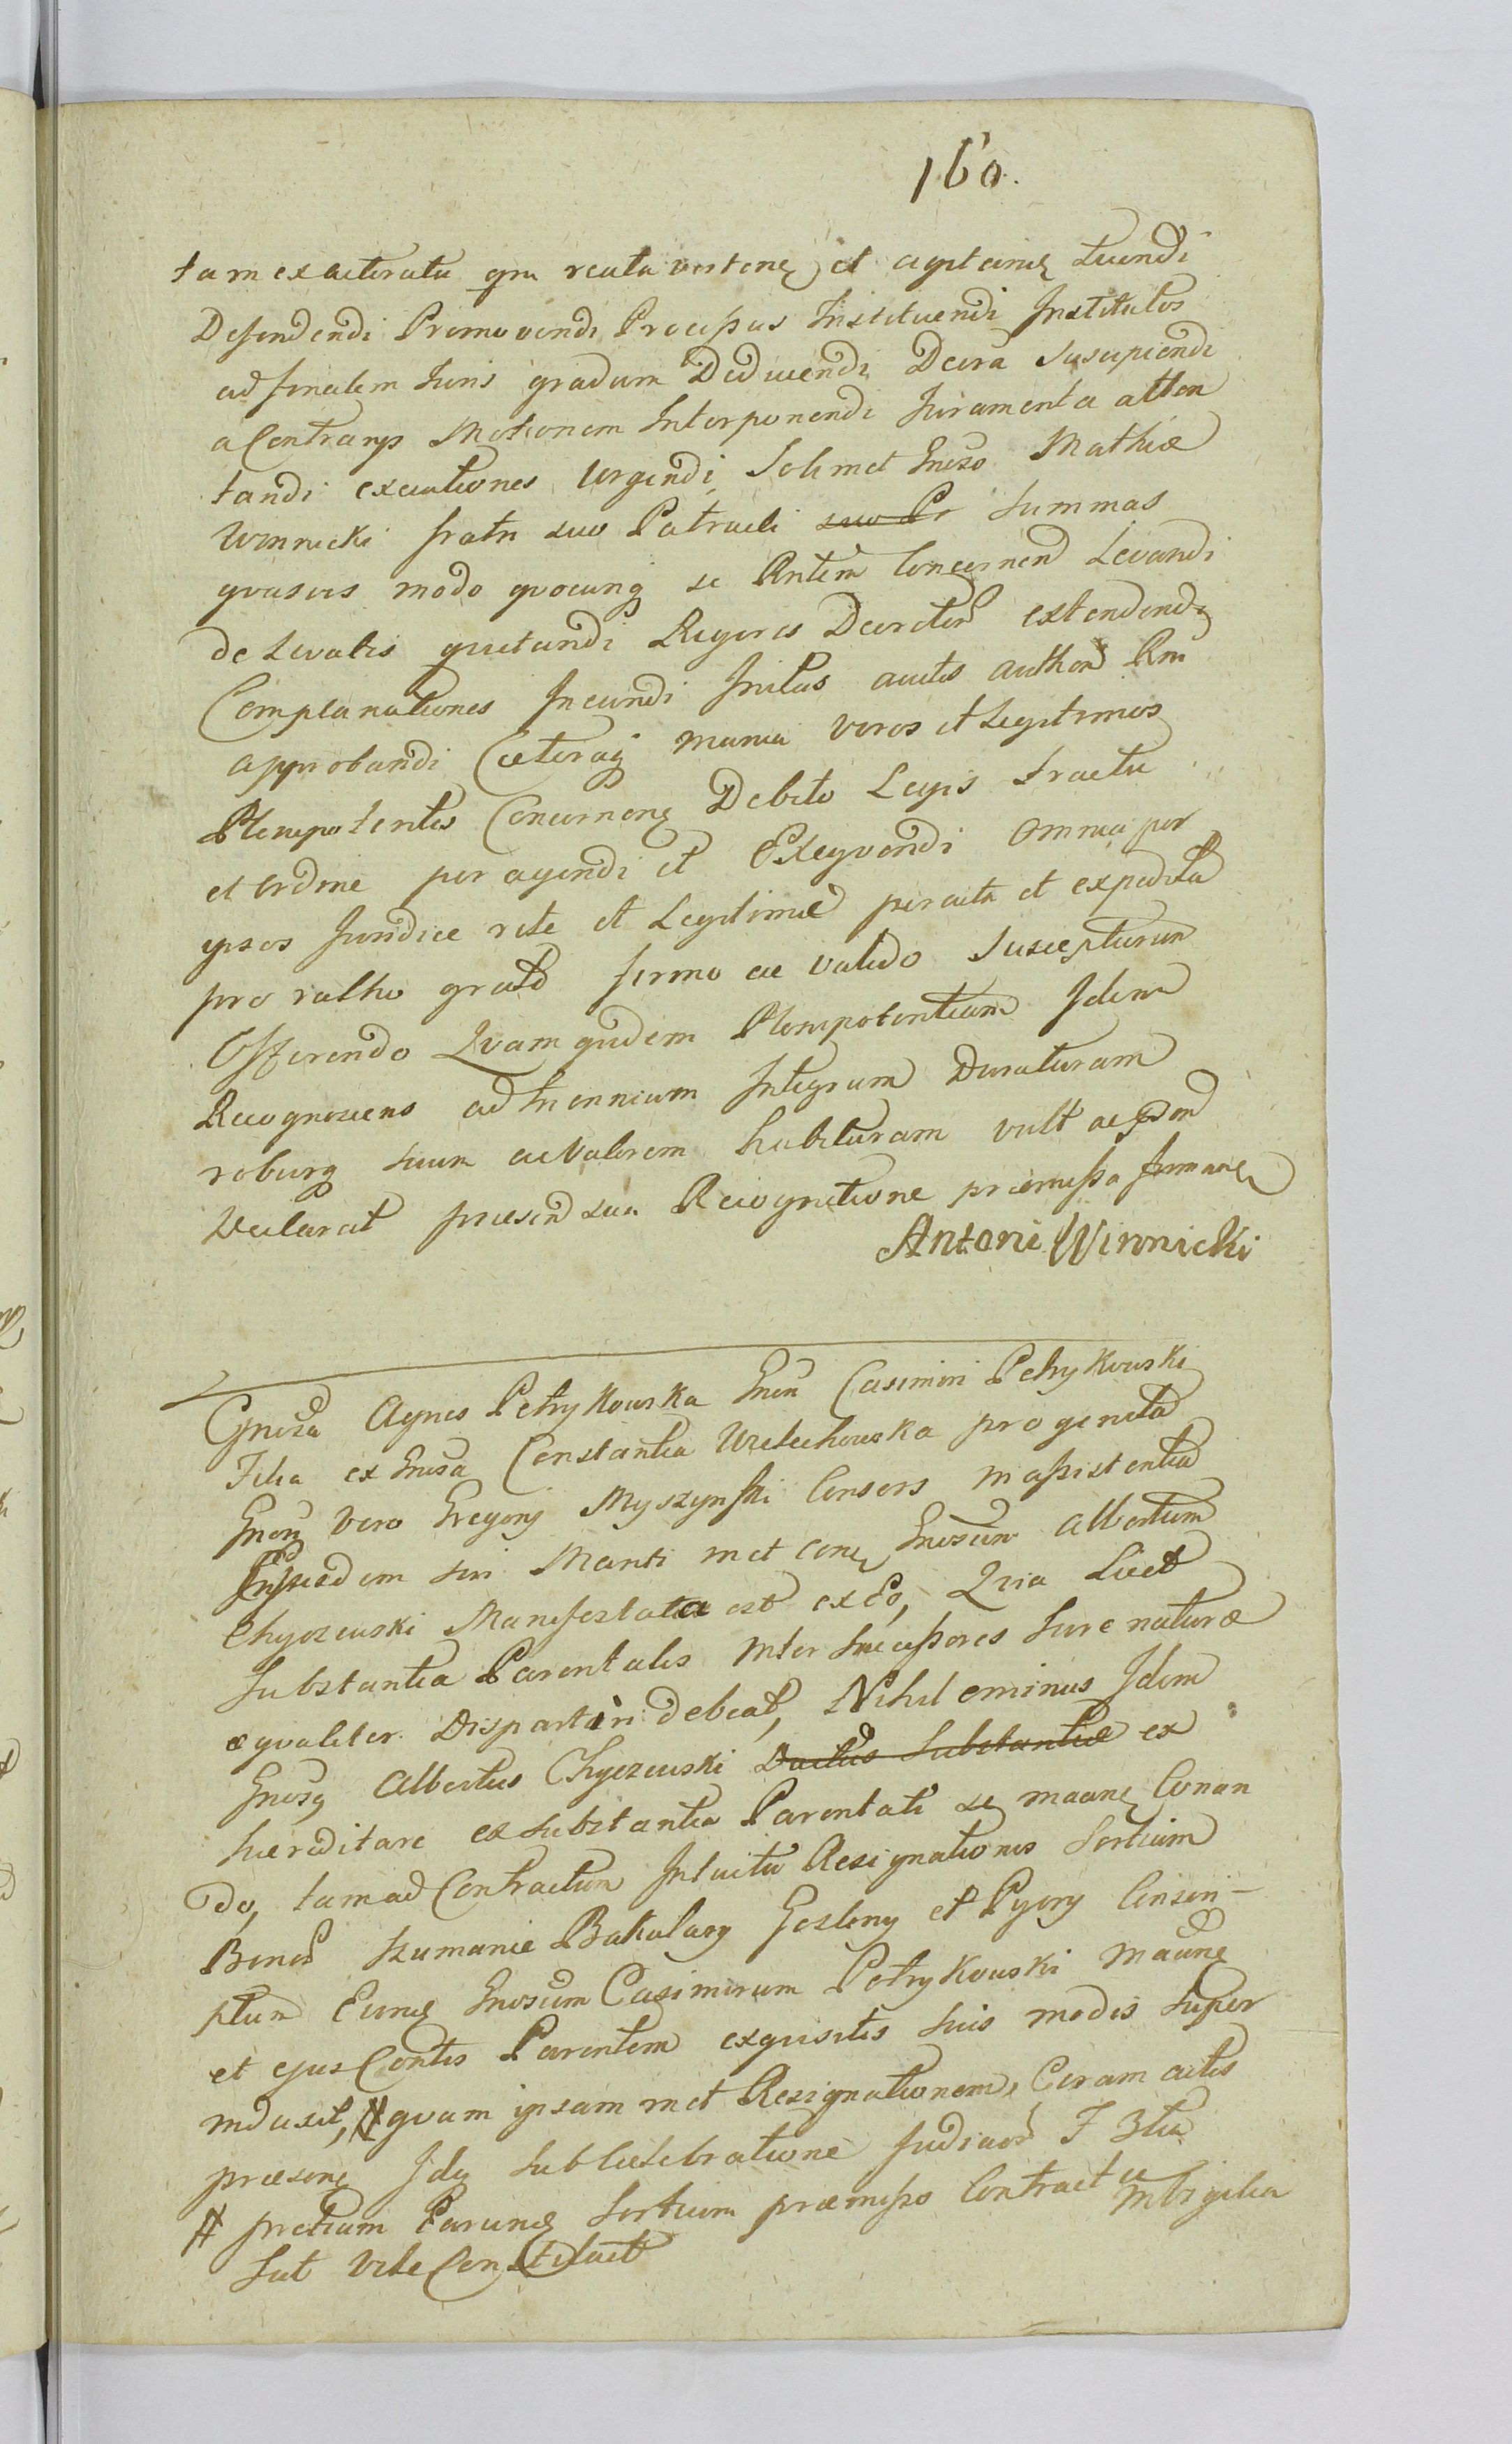 160.
tam ex acticatu qm reatu vertens et agitans tuendi
Defendendi Promovendi Processus Instituendi Institutos
ad finalem Juris gradum Deducendi Decra Suscipiendi
a Contrarys Motionem Interponendi Juramenta atten
tandi executiones Urgendi Solimet Gnoso Mathiæ
Winnicki fratri suo Patrueli suo Pr Summas
quasvis modo quocunq se Rntem Concernend Levandi
de Levatis quietandi Rigores Decretor extendendi
Complanationes Ineundi Initas actis authen Rm
approbandi Cæteraq munia veros et Legitimos
Plenipotentes Concernens Debito Legis tractu
et ordine peragendi et Exeqvendi omnia per
ipsos Juridice rite et Legitime peracta et expedita
pro ratho grato firmo ac valido Suscepturum
Offerendo Qvam quidem Plenipotentiam Idem
Recognoscens ad triennium Integrum Duraturam
roburq suum ac valorem habituram vult ac
Declarat præsend sua Recognitione præmissa
Antoni Winnicki
Gnosa Agnes Petrykowska Gnosi Casimiri Petrykowski
Filia ex Gnosa Constantia Wielechowska progenita
Gnosi vero Gregorij Myszynski Consors in assistentia
ejusdem sui Mariti met cons Gnosum Albertum
Chyczewski Manifestata est ex Eo, Qvia Licet
Substantia Parentalis inter Successores Jure naturæ
æqualiter Dispartiri debeat, Nihil eminus Idem
Gnosq Albertus Chyczewski Ductus Substantiæ ex
hæreditare ex substantia Parentali se maane Conan
do, tam ad Contractum Intuitu Resignationis Sortium
Bonor Szumanie Bakalary Gozliny et Pyory Conscri-
ptum Eunq Gnosum Casimirum Petrykowski maane
et ejus Contis Parentem exquisitis suis modis super
induxit, # quam ipsam met Resignationem, Coram actis
præsens Idq sub Celebratione Judicior F 3tia
# pretium Earunq Sortium præmisso Contractu in Vigilia
Sat vile Constituit